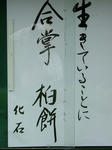 生きていることに
合掌 柏餅
化石